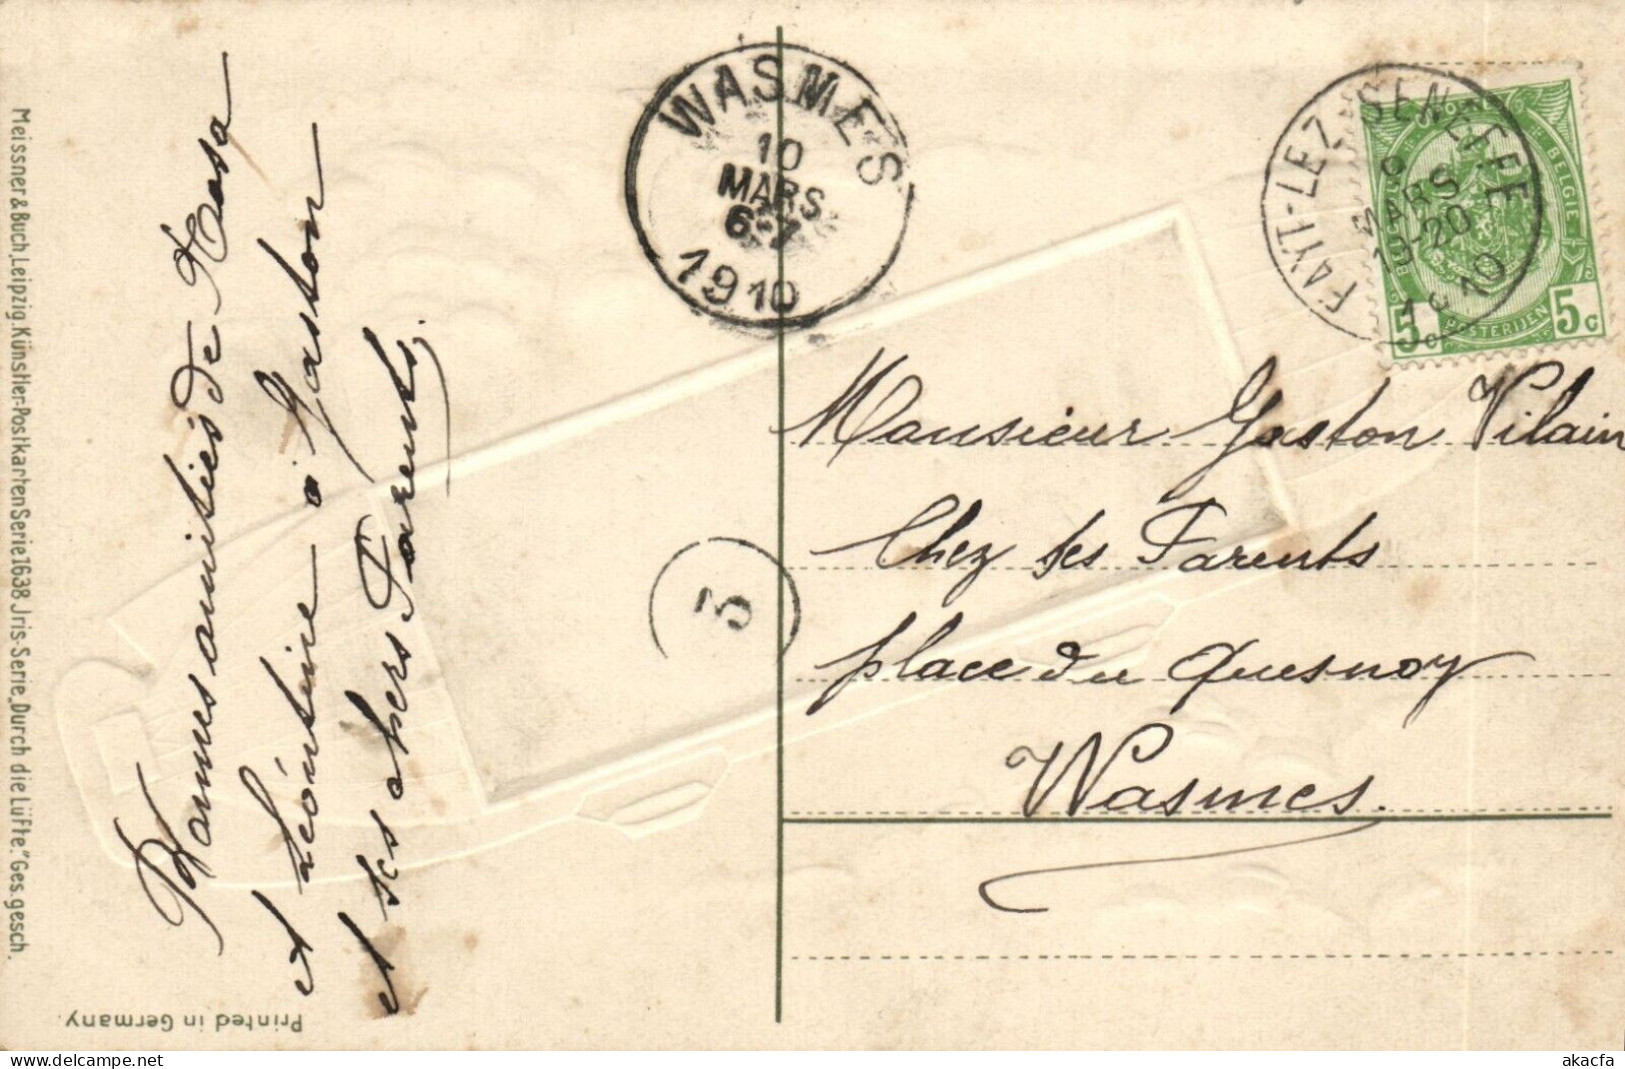 Meissner & Buch, Leipzig. Künstler-Postkarten Serie 1638 Jris-Serie „Durch die Lüfte." Ges. gesch.
Printed in Germany.
Bonnes amitiés de Rosa
et Léontine à Gaston
et ses chers Parents.
WASMES
10
MARS
6-7
1910
3
FAYT-LEZ SENEFFE
MARS
10
BELGIE
POSTERIJEN
5c
5c
Monsieur Gaston Vilain
Chez ses Parents
place du Quesnoy
Wasmes.
akacfa